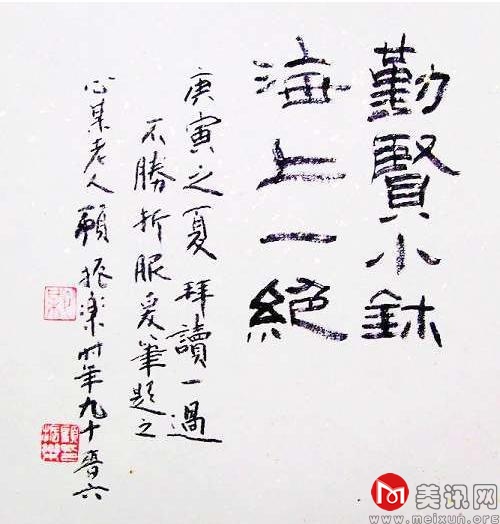 勤賢小鉢
海上一絕
庚寅之夏拜讀一過
不勝折服爰筆題之
心某老人顧振樂時年九十晋六
美讯网
www.meixun.org